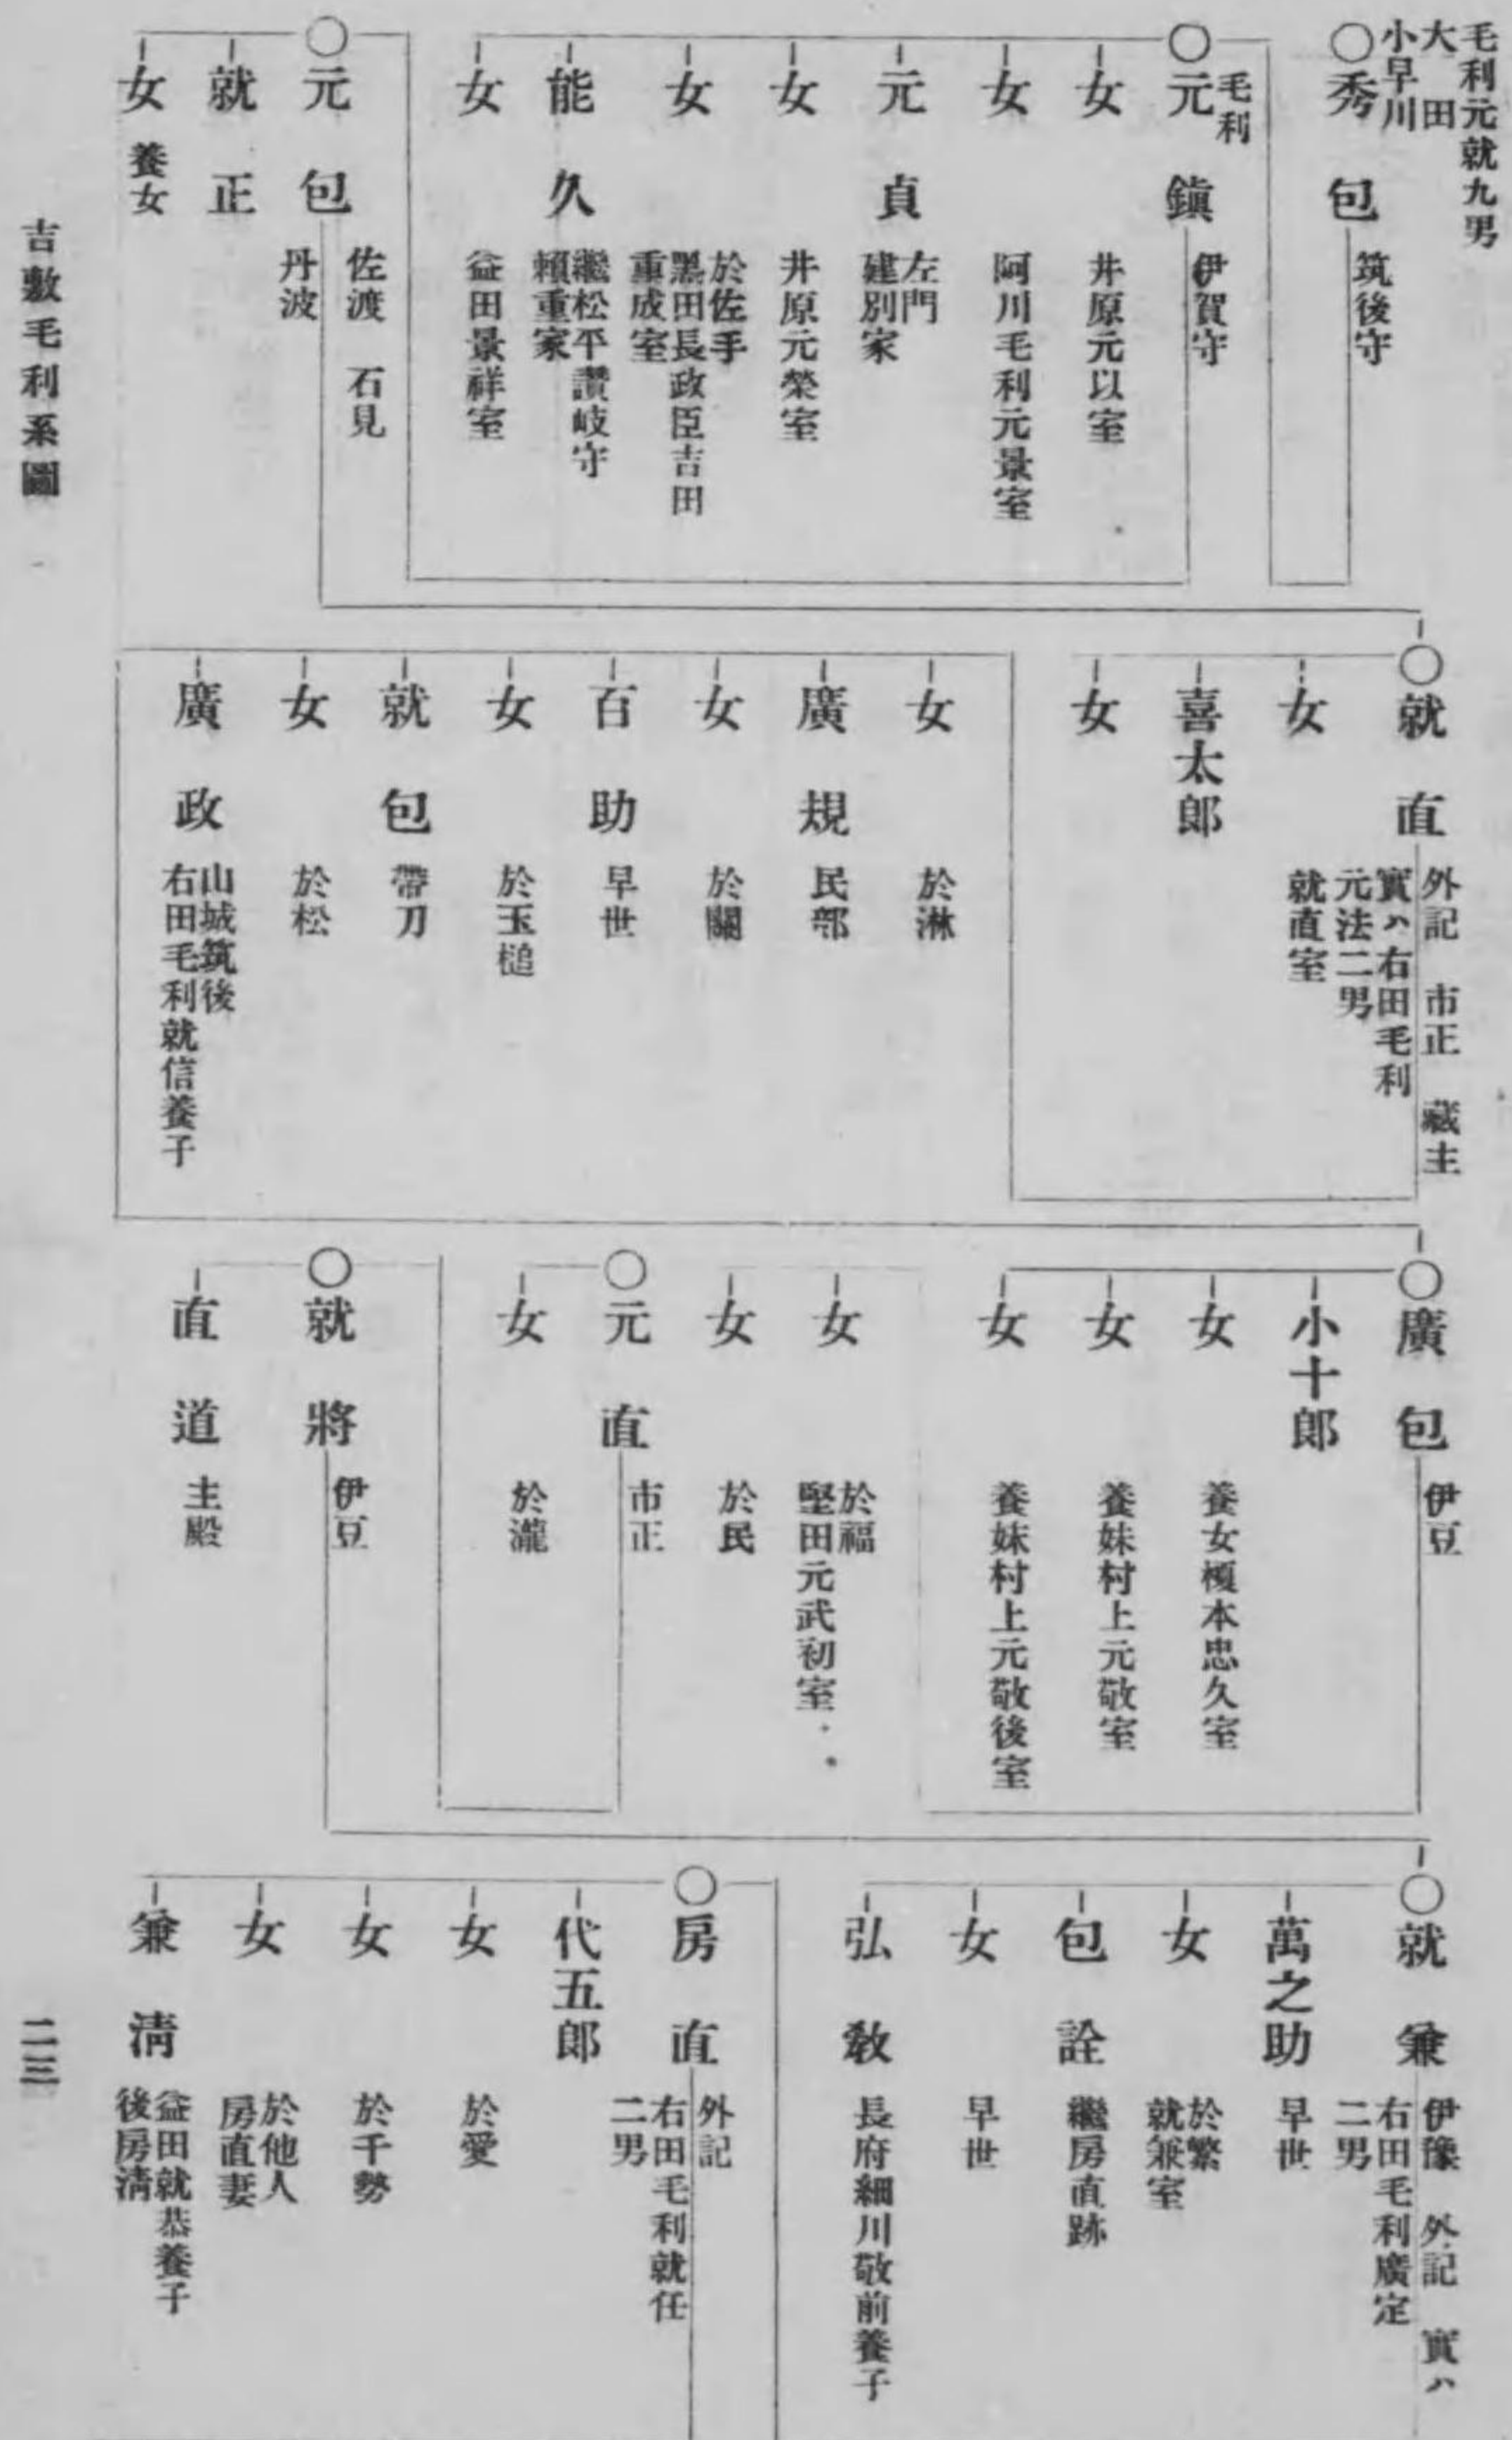 毛利元就九男
大田
小早川
○秀包
筑後守
毛利
○元鎭
伊賀守
女
井原元以室
女
阿川毛利元景室
元貞
左門
建別家
女
井原元榮室
女
於佐手
黑田長政臣吉田
重成室
能久
繼松平讚岐守
賴重家
女
益田景祥室
○元包
佐渡 石見
丹波
就正
女
養女
○就直
外記 市正 藏主
實ハ右田毛利
元法二男
女
就直室
喜太郎
女
女
於淋
廣規
民部
女
於關
百助
早世
女
於玉槌
就包
帶刀
女
於松
廣政
山城筑後
右田毛利就信養子
○廣包
伊豆
小十郎
女
養女榎本忠久室
女
養妹村上元敬室
女
養妹村上元敬後室
女
於福
堅田元武初室
女
於民
○元直
市正
女
於瀧
○就將
伊豆
直道
主殿
○就兼
伊豫 外記 實ハ
右田毛利廣定
二男
萬之助
早世
女
於繁
就兼室
包詮
繼房直跡
女
早世
弘敎
長府細川敬前養子
○房直
外記
右田毛利就任
二男
代五郎
女
於愛
女
於千勢
女
於他人
房直妻
兼淸
益田就恭養子
後房淸
吉敷毛利系圖
二三